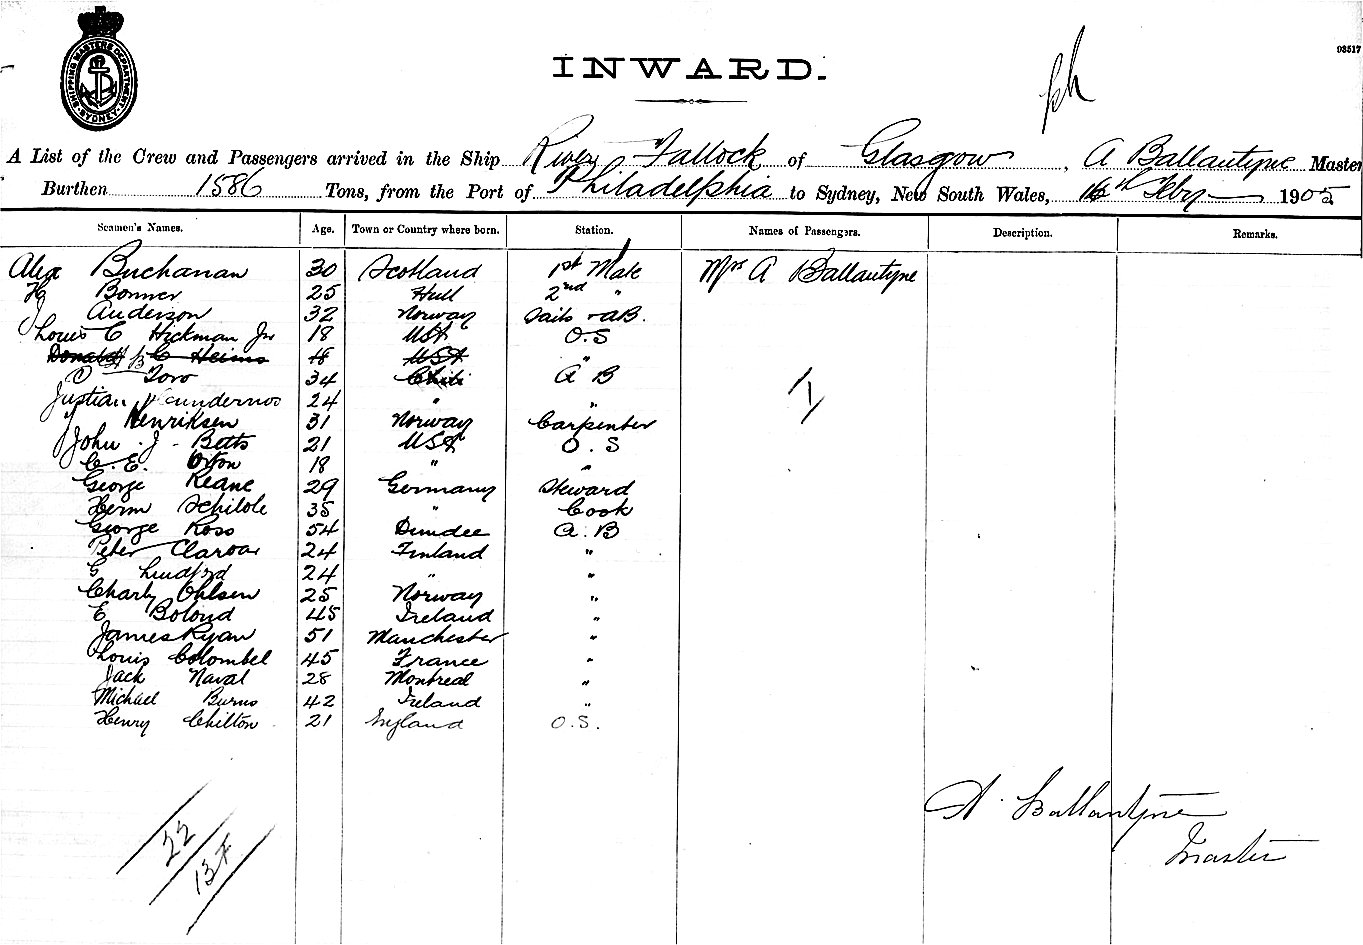 SHIPPING MASTERS DEPARTMENT
SYDNEY
INWARD.
98517
A List of the Crew and Passengers arrived in the Ship River Fallock of Glasgow, A Ballantyne Master
Burthen 1586 Tons, from the Port of Philadelphia to Sydney, New South Wales, 16th Feby 1905
Seamen's Names. Age. Town or Country where born. Station. Names of Passengers. Description. Remarks.
Alex Buchanan 30 Scotland 1st Mate Mrs A Ballantyne
Hy Bonner 25 Hull 2nd "
J Anderson 32 Norway Sails & AB.
Louis C Hickman Jr 18 USA O.S
Donald B C Heims 18 USA "
Toro 34 Chili A B
1
Justian 24 " "
Henriksen 31 Norway Carpenter
John J Betts 21 USA O.S
C. E. Orton 18 " "
George Keane 29 Germany Steward
Herm Schilole 35 " Cook
George Ross 54 Dundee A.B
Peter Claroar 24 Finland "
G Lindford 24 " "
Charly Ohlsen 25 Norway "
E Bolond 45 Ireland "
James Ryan 51 Manchester "
Louis Colombel 45 France "
Jack Naval 28 Montreal "
Michael Burns 42 Ireland "
Henry Chilton 21 England O.S.
A. Ballantyne
Master
22